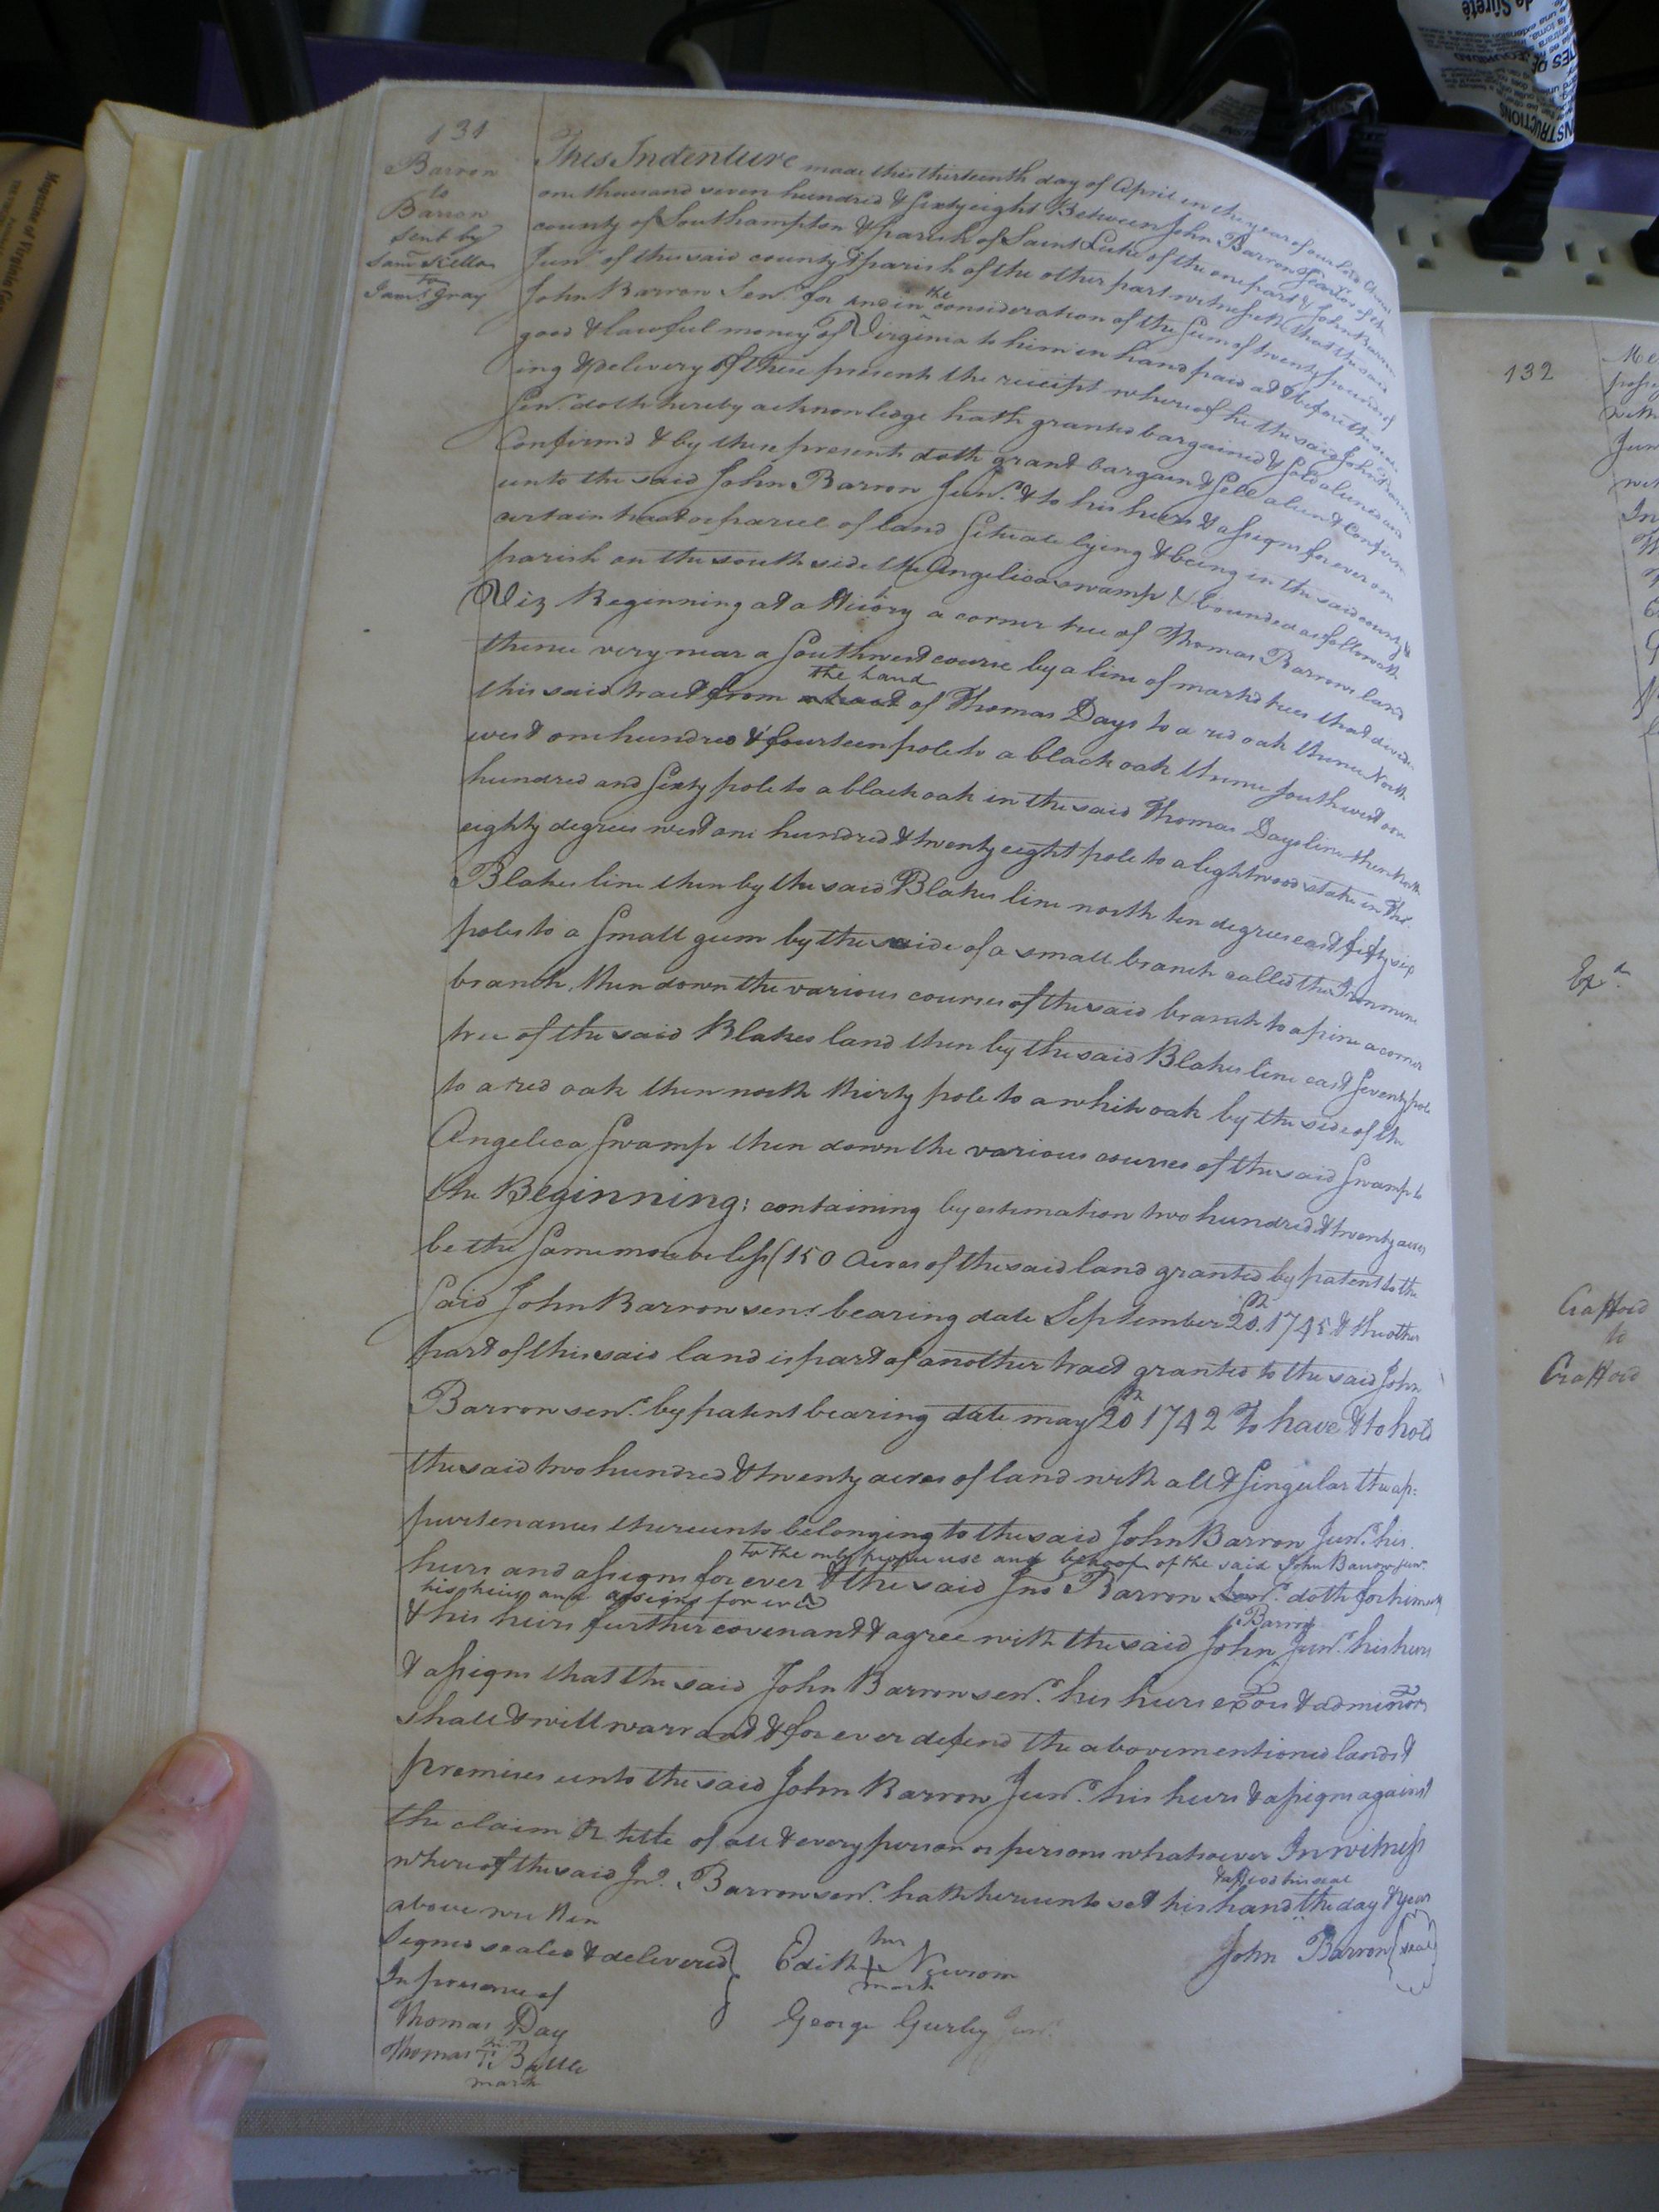 131
Barron
to
Barron
sent by
Sam Kello
to
Jams. Gray
This Indenture made this thirteenth day of April in the year of our Lord Christ
one thousand seven hundred & Sixty eight Between John Barron Senior of the
county of Southampton & parish of Saint Luke of the one part & John Barron
Junr. of the said county & parish of the other part witnesseth that the said
John Barron Senr. for and in the consideration of the Sum of twenty pounds of
good & lawful money of Virginia to him in hand paid at & before the
ing & delivery of these present the receipt whereof he the said John Barron
Senr. doth hereby acknowledge hath granted bargained & Sold aliened and
Confirmd & by these present doth grant bargain & Sell alien & Confirm
unto the said John Barron Junr. & to his heirs & assigns for ever one
certain tract or parcel of land Situate lying & being in the said county &
parish on the south side the Angelica swamp & bounded as followeth
Viz Beginning at a Hicory a corner tree of Thomas Barrons land
thence very near a Southwest course by a line of markd trees that divides
this said tract from the Land of Thomas Days to a red oak thence North
west one hundred & fourteen pole to a black oak thence Southwest one
hundred and Sixty pole to a black oak in the said Thomas Days line then North
eighty degrees west one hundred & twenty eight pole to a lightwood stake in Thos.
Blakes line then by the said Blakes line north ten degrees east fifty six
poles to a Small gum by the side of a small branch called the Iron mine
branch, then down the various courses of the said branch to a pine a corner
tree of the said Blakes land then by the said Blakes line east Seventy pole
to a red oak then north thirty pole to a white oak by the side of the
Angelica Swamp then down the various courses of the said Swamp to
the Beginning; containing by estimation two hundred & twenty acres
be the Same more or less (150 Acres of the said land granted by patent to the
Said John Barron senr. bearing date September 20th. 1745 & the other
part of this said land is part of another tract granted to the said John
Barron senr. by patent bearing date may 20th 1742 To have & to hold
the said two hundred & twenty acres of land with all & Singular the ap=
purtenances thereunto belonging to the said John Barron Junr. his
to the only proper use and behoof of the said John Barron junr.
heirs and assigns for ever & the said Jno Barron Senr. doth for himself
his heirs and assigns for ever
& his heirs further covenant & agree with the said John Barron Junr. his heirs
& assigns that the said John Barron senr. his heirs exors & adminors
shall & will warrant & for ever defend the abovementioned lands &
premises unto the said John Barron Junr. his heirs & assigns against
the claim Or title of all & every person or persons whatsoever In witness
whereof the said Jno. Barron senr. hath hereunto set his hand & affixd his seal the day & year
above written
Signed sealed & delivered
In presence of
Edith her + mark Newsom
John Barron (seal)
Thomas Day
George Gurley Junr.
Thomas his T mark Battle
132
Exd.
Crafford
to
Crafford
Magazine of Virginia
de Sûreté
INSTRUCTIONS